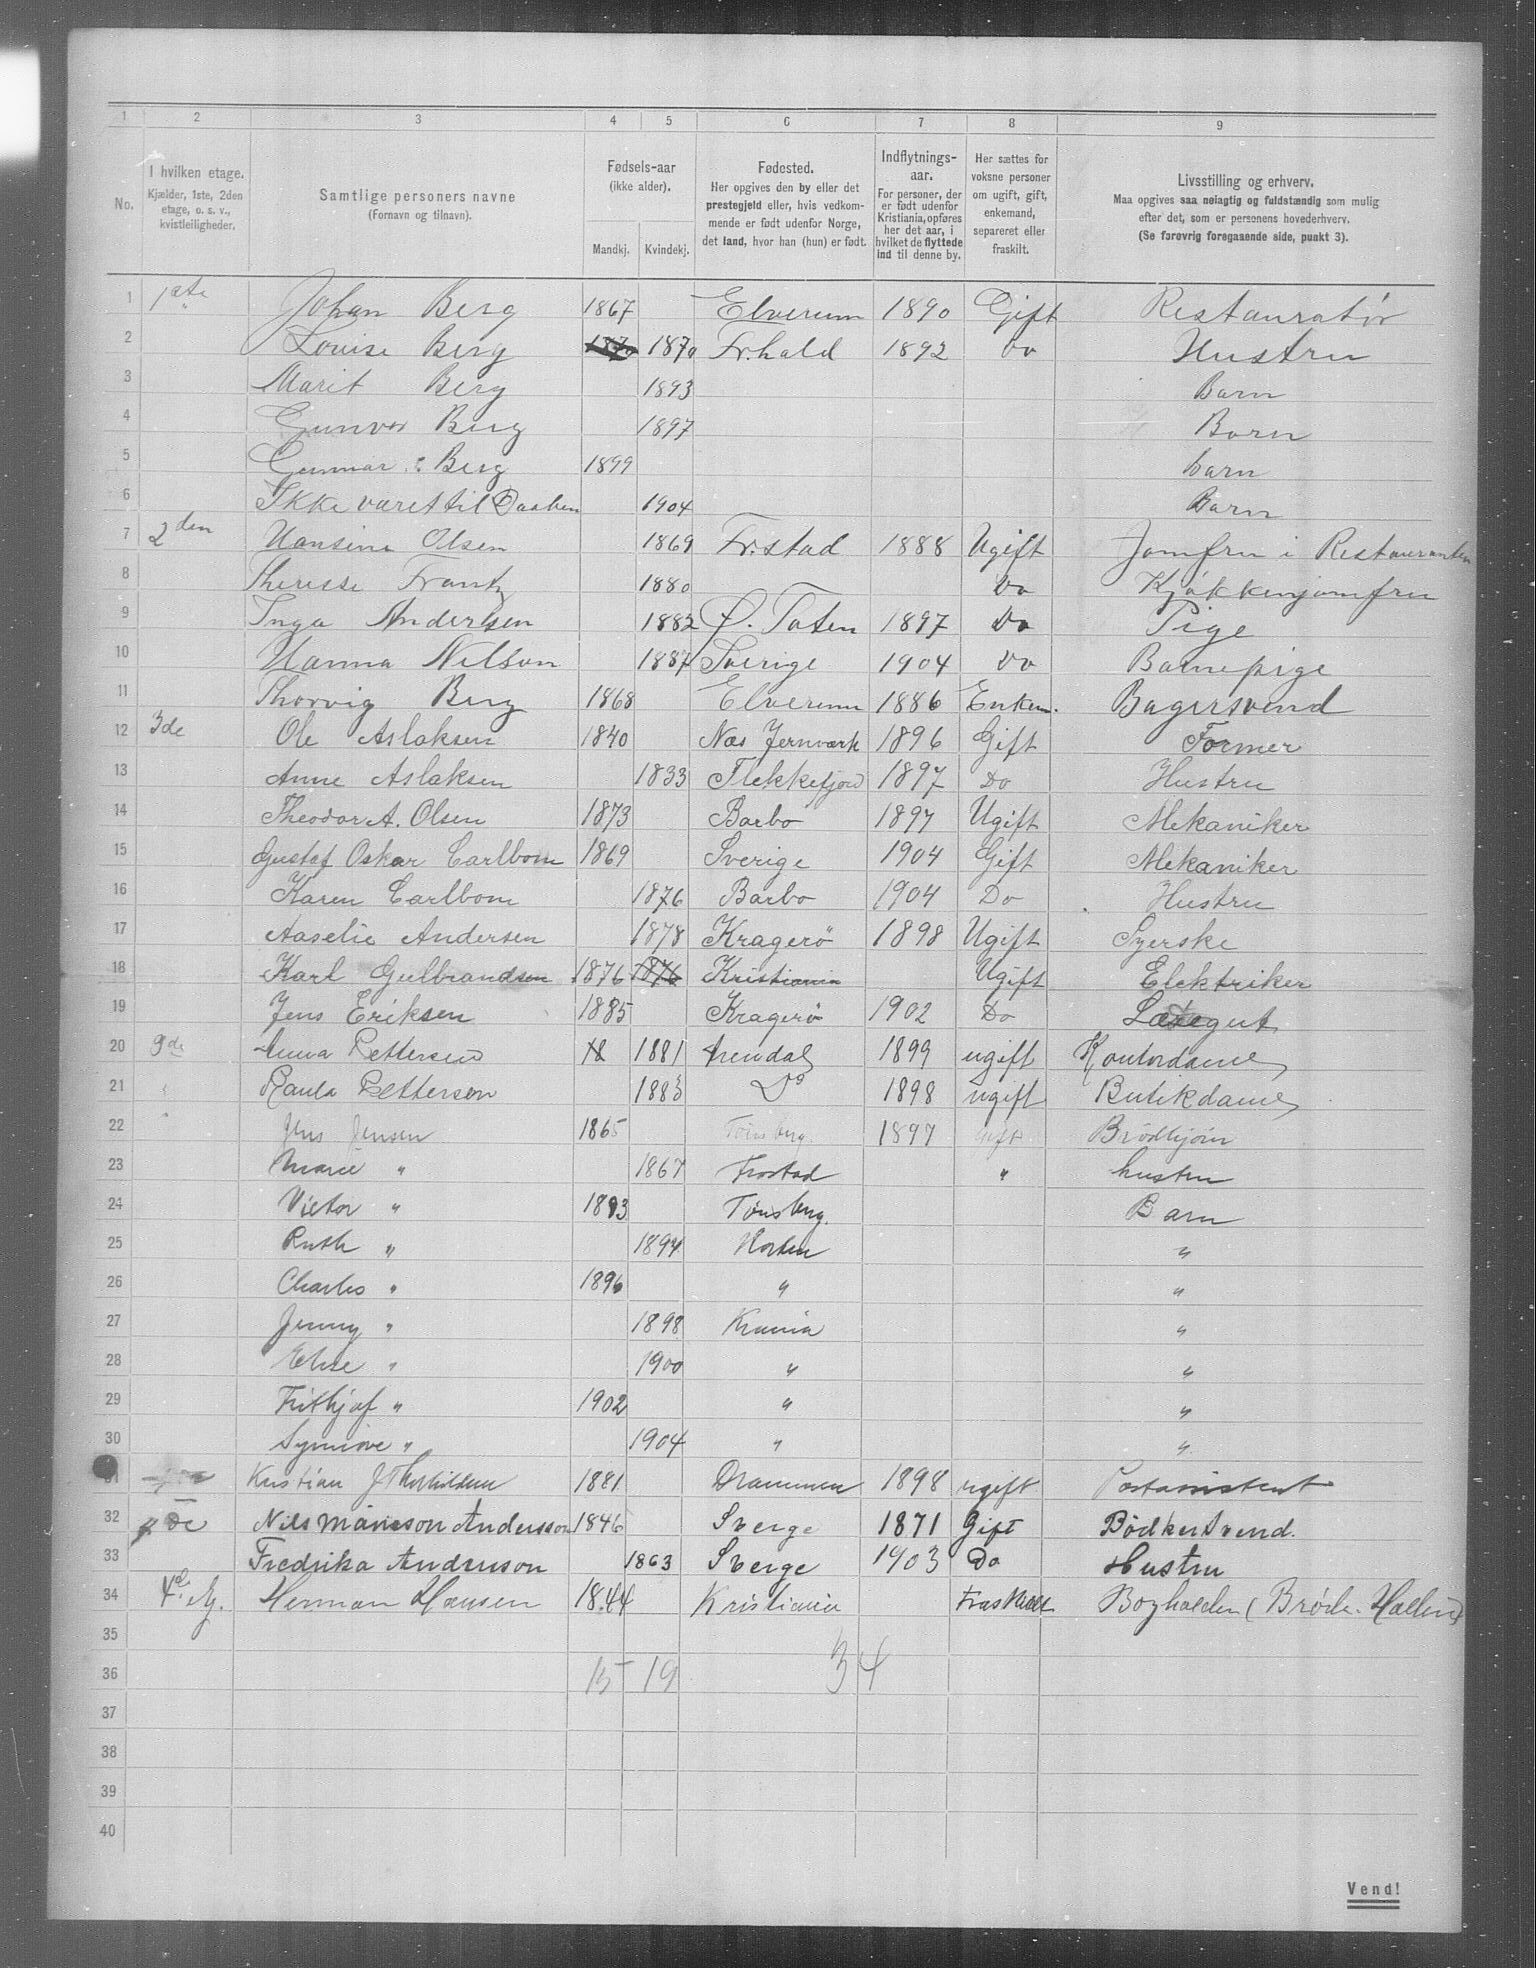 1 2 3 4 5 6 7 8 9
No.
I hvilken etage.
Kjælder, 1ste, 2den
etage, o. s. v.,
kvistleiligheder.
Samtlige personers navne
(Fornavn og tilnavn).
Fødsels-aar
(ikke alder).
Mandkj. Kvindekj.
Fødested.
Her opgives den by eller det
prestegjeld eller, hvis vedkom-
mende er født udenfor Norge,
det land, hvor han (hun) er født.
Indflytnings-
aar.
For personer, der
er født udenfor
Kristiania, opføres
her det aar, i
hvilket de flyttede
ind til denne by.
Her sættes for
voksne personer
om ugift, gift,
enkemand,
separeret eller
fraskilt.
Livsstilling og erhverv.
Maa opgives saa nøiagtig og fuldstændig som mulig
efter det, som er personens hovederhverv.
(Se forøvrig foregaaende side, punkt 3).
1 1ste Johan Berg 1867 Elverum 1890 Gift Restauratør
2 Louise Berg 1870 1870 Fr.hald 1892 Do Hustru
3 Marit Berg 1893 Barn
4 Gunvor Berg 1897 Barn
5 Gunnar Berg 1899 barn
6 Ikke været til Daaben 1904 Barn
7 2den Hansine Olsen 1869 Fr.stad 1888 Ugift Jomfru i Restauranten
8 Theresse Frantz 1880 Do Kjøkkenjomfru
9 Inga Andersen 1882 Ø. Toten 1897 Do Pige
10 Hanna Nilson 1887 Sverige 1904 Do Barnepige
11 Thorvig Berg 1868 Elverum 1886 Enkem. Bagersvend
12 3de Ole Aslaksen 1840 Næs Jernværk 1896 Gift Former
13 Anne Aslaksen 1833 Flekkefjord 1897 Do Hustru
14 Theodor A. Olsen 1873 Barbo 1897 Ugift Mekaniker
15 Gustaf Oskar Carlbom 1869 Sverige 1904 Gift Mekaniker
16 Karen Carlbom 1876 Barbo 1904 Do Hustru
17 Aaselie Andersen 1878 Kragerö 1898 Ugift Syerske
18 Karl Gulbrandsen 1876 1876 Kristiania Ugift Elektriker
19 Jens Eriksen 1885 Kragerö 1902 Do Læregut
20 3de Anna Pettersen 18 1881 Arendal 1899 ugift Kontordame
21 Paula Pettersen 1883 Do 1898 ugift Butikdame
22 Jens Jensen 1865 Tønsberg. 1897 Gift Brödkjörer
23 Marie " 1867 Frstad " hustru
24 Victor " 1893 Tønsberg. Barn
25 Ruth " 1894 Horten "
26 Charles " 1896 " "
27 Jenny " 1898 Krania "
28 Elise " 1900 " "
29 Frithjof " 1902 " "
30 Synnøve " 1904 " "
31 Kristian J Thorkildsen 1881 Drammen 1898 ugift Postassistent
32 4de Nils Månsson Andersson 1846 Sverge 1871 Gift Bödkersvend.
33 Fredrika Andersson 1863 Sverge 1903 Do Hustru
34 Herman Hansen 1844 Kristiania Fraskilt Boghalder (Bröde. Hallen)
35
36 15 19 34
37
38
39
40
Vend!